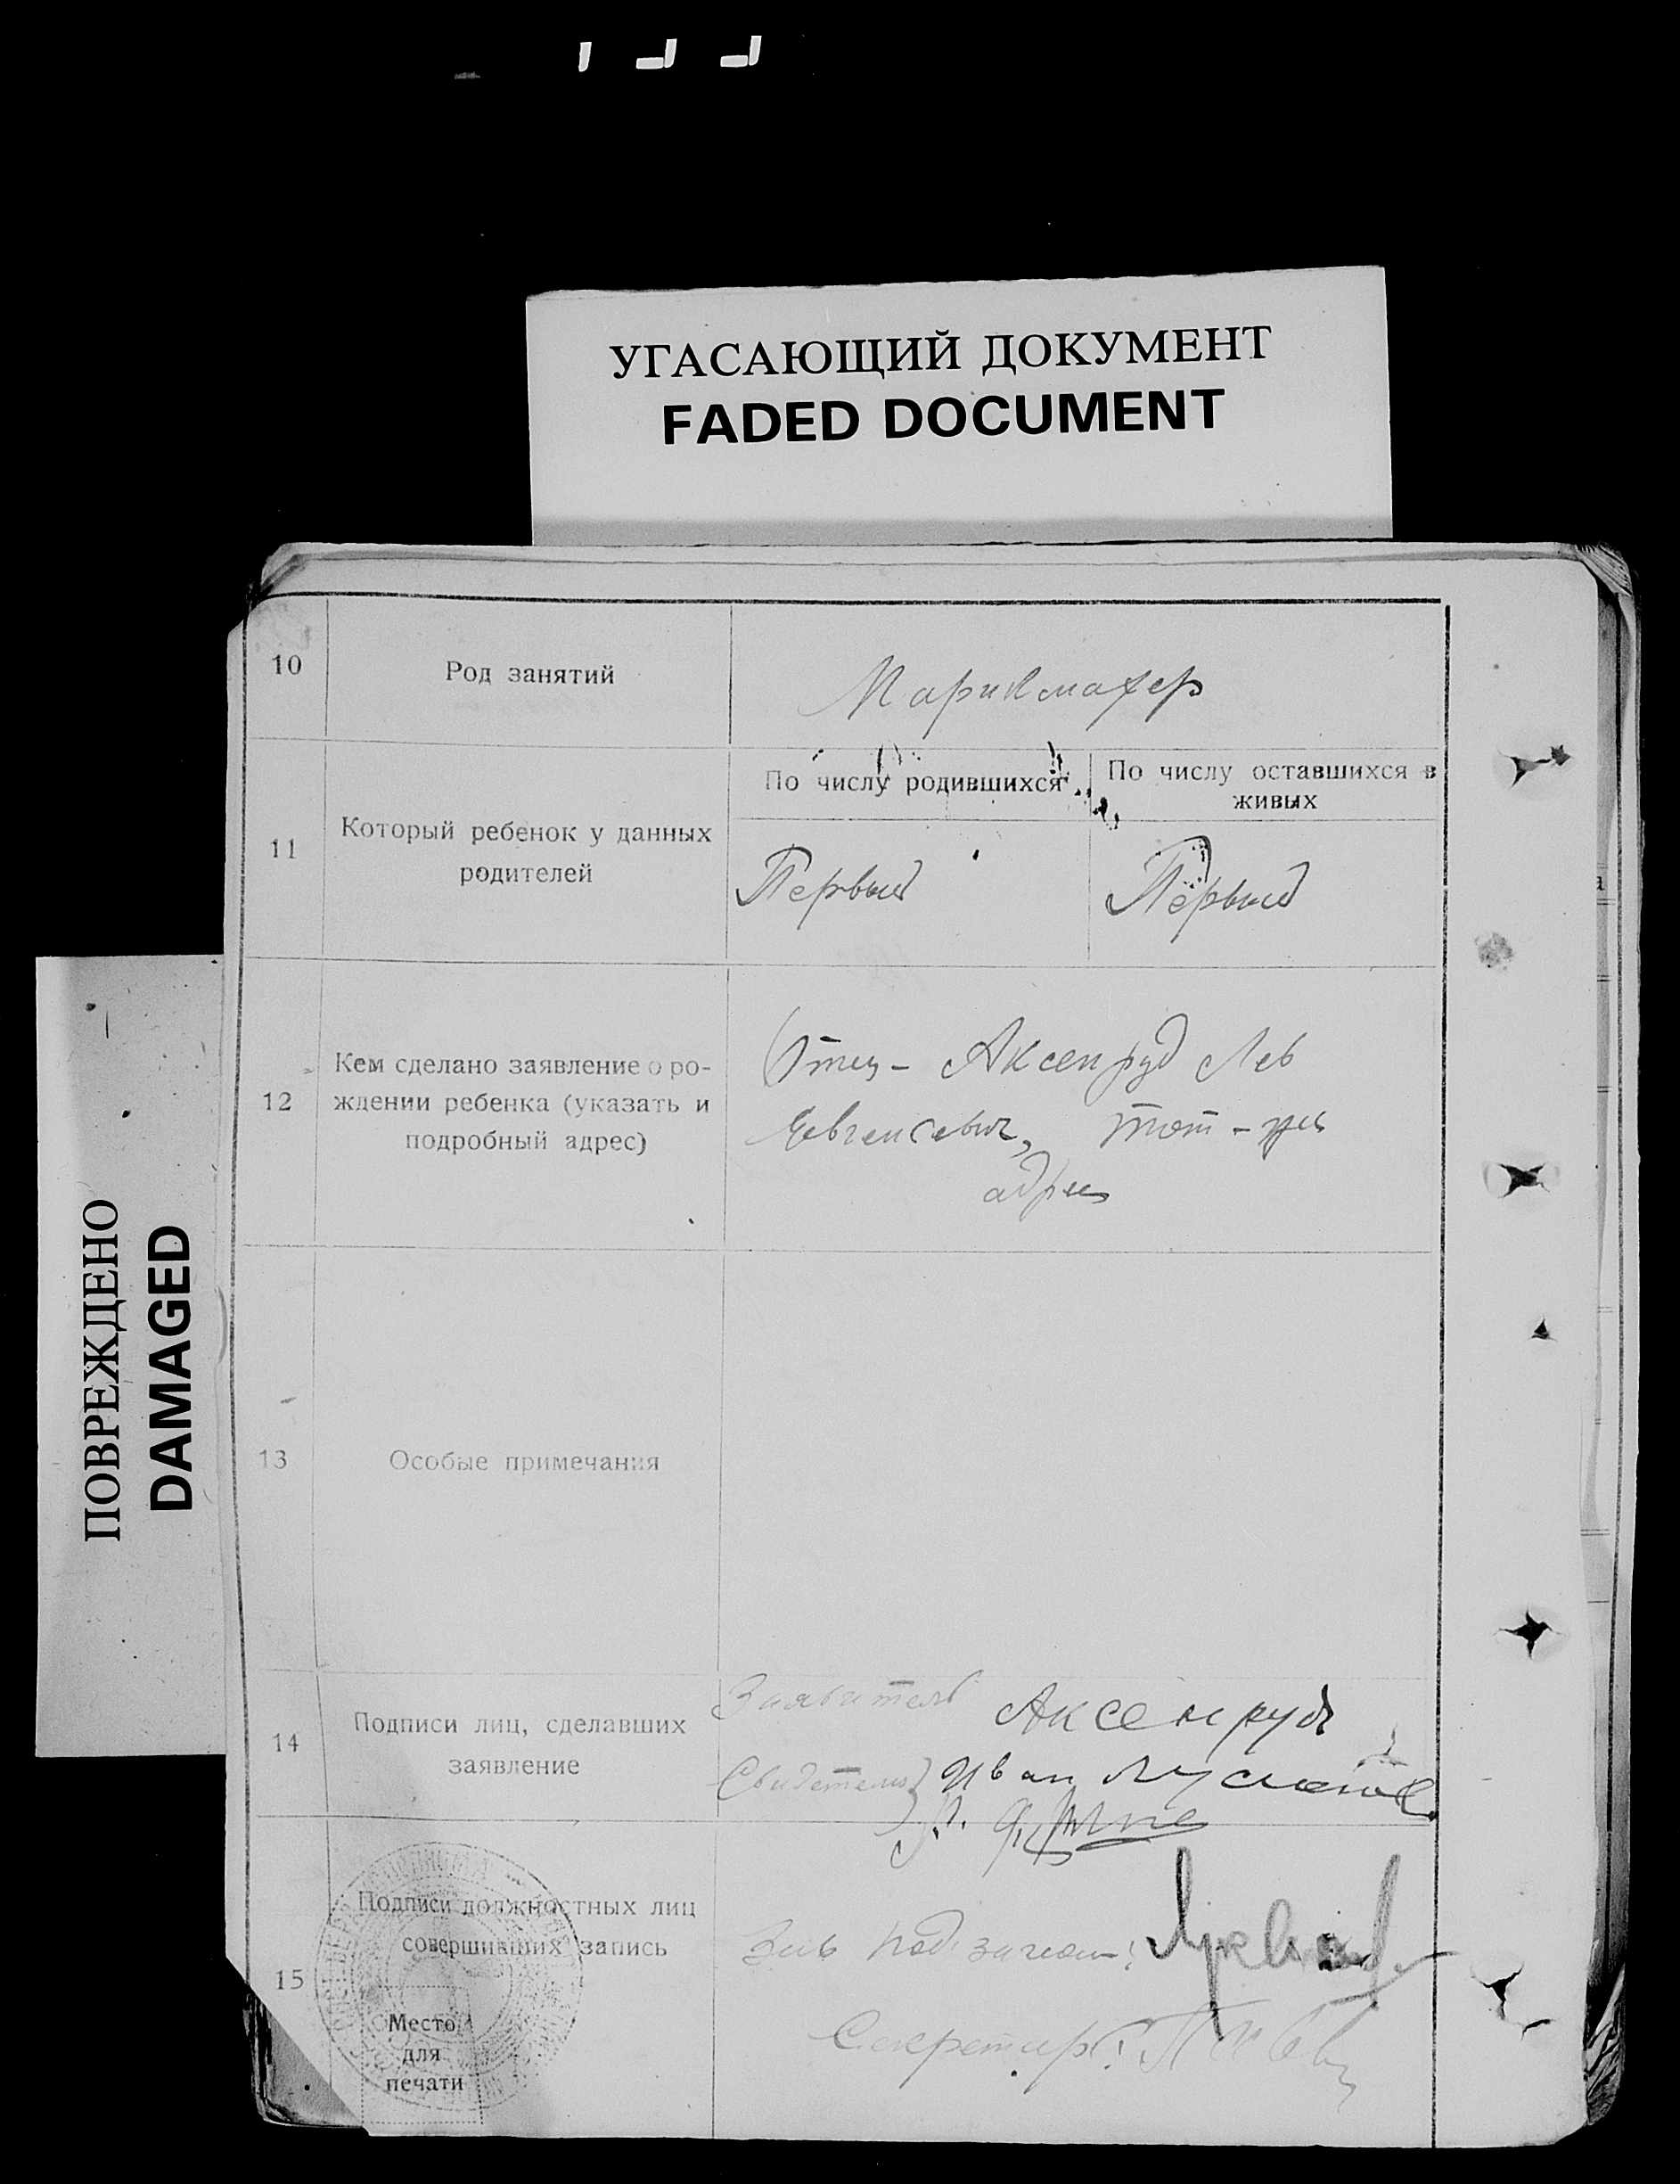 УГАСАЮЩИЙ ДОКУМЕНТ
FADED DOCUMENT
ПОВРЕЖДЕНО
DAMAGED
10 Род занятий Парикмахер
11 Который ребенок у данных родителей
По числу родившихся
По числу оставшихся в
живых
Первый
Первый
12
Кем сделано заявление о ро-
ждении ребенка (указать и
подробный адрес)
Отец - Аксенруд Лев
Евгенсевич, тот - же
адрес
13 Особые примечания
14
Подписи лиц, сделавших
заявление
Заявитель Аксенруд
Свидетели Иван
15
Подписи должностных лиц
совершивших запись
Место
для
печати
Зав
Секретарь: